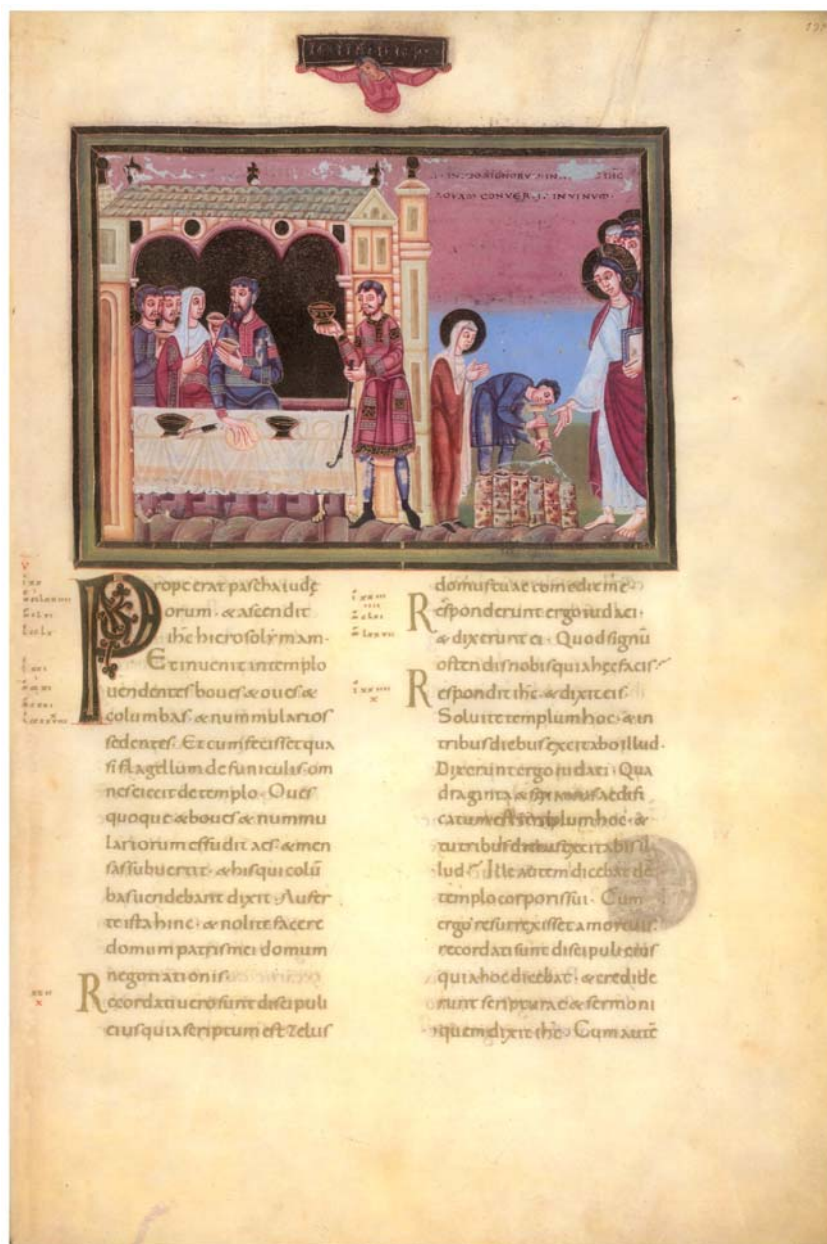 AQVAM CONVERTIT IN VINVM
Prope erat pascha iudę
orum · & ascendit
ihc hierosolymam ·
Et inuenit in templo
uendentes boues & oues &
columbas · & nummularios
sedentes · Et cum fecisset qua
si flagellum de funiculis om
nes eiecit de templo · Oues
quoque & boues & nummu
lariorum effudit aes · & men
sas subuertit · & his qui colū
bas uendebant dixit · Aufer
te ista hinc · & nolite facere
domum patris mei domum
negotiationis ·
Recordati uero sunt discipuli
eius quia scriptum est Zelus
domus tuae comedit me ·
Responderunt ergo iudaei ·
& dixerunt ei · Quod signū
ostendis nobis quia hęc facis
Respondit ihc · & dixit eis ·
Soluite templum hoc · & in
tribus diebus excitabo illud ·
Dixerunt ergo iudaei · Qua
draginta & sex annis aedifi
catum est templum hoc · &
tu tribus diebus excitabis il
lud · Ille autem dicebat de
templo corporis sui · Cum
ergo resurrexisset a mortuis ·
recordati sunt discipuli eius
quia hoc dicebat · & credide
runt scripturae & sermoni
quem dixit ihc · Cum autē